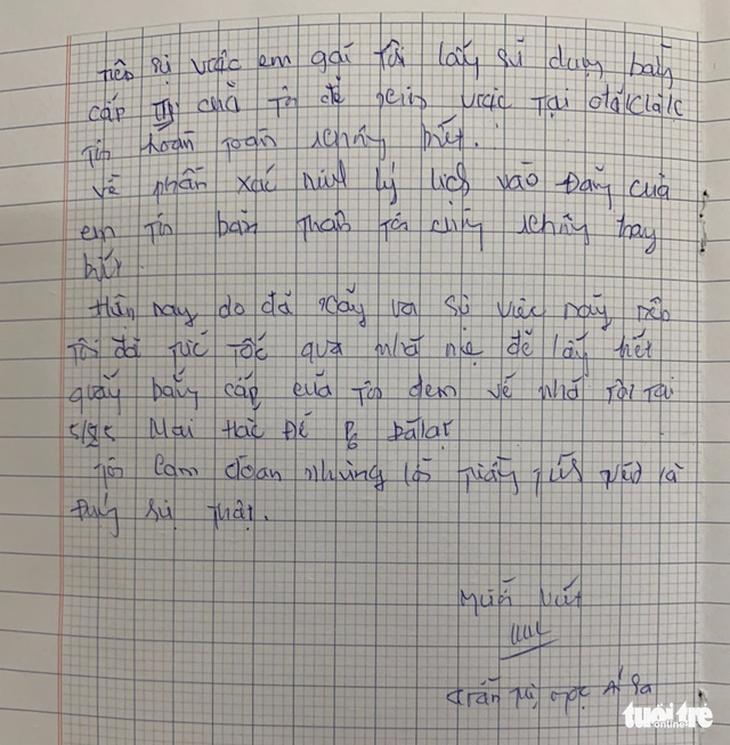 Tiếp sự việc em gái tôi lấy sử dụng bằng
cấp III của tôi để xin việc tại ĐắkLắk
tôi hoàn toàn không biết.
Về phần xác minh lý lịch vào Đảng của
em tôi bản thân tôi cũng không hay
biết.
Hiện nay do đã xảy ra sự việc này nên
tôi đã tức tốc qua nhà mẹ để lấy hết
giấy bằng cấp của tôi đem về nhà tôi tại
Mai Hắc Đế P6 Đàlạt
Tôi cam đoan những lời trên là
đúng sự thật.
Người viết
Trần Thị Ngọc Ái Sa
tuổi trẻ
online